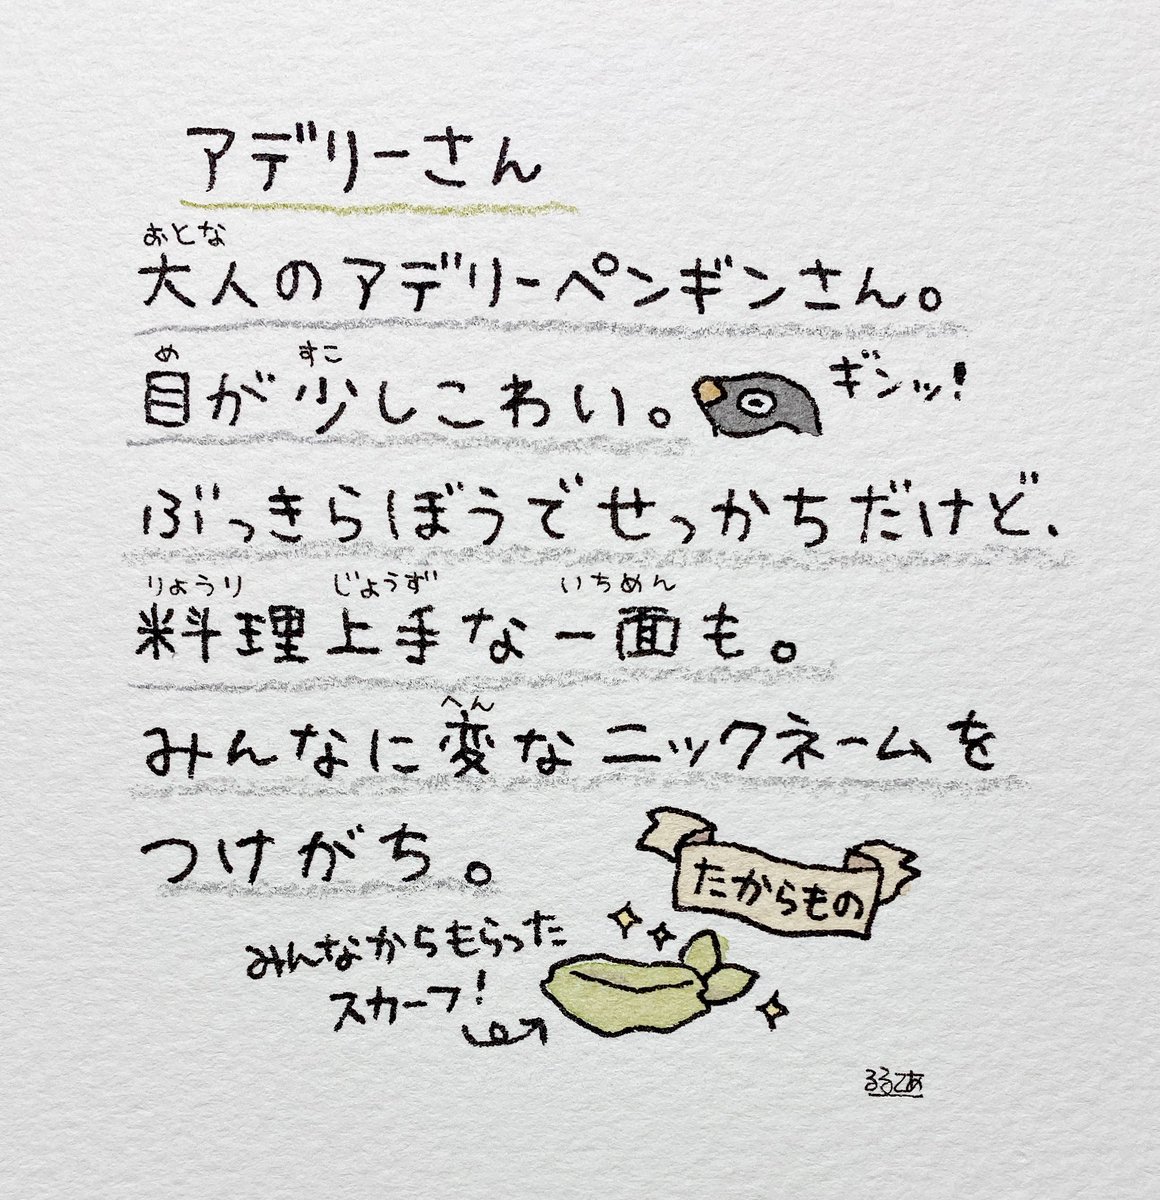 アデリーさん
おとな
大人のアデリーペンギンさん。
め すこ
目が少しこわい。 ギンッ!
ぶっきらぼうでせっかちだけど、
りょうり じょうず いちめん
料理上手な一面も。
へん
みんなに変なニックネームを
つけがち。
たからもの
みんなからもらった
スカーフ!
るるてあ